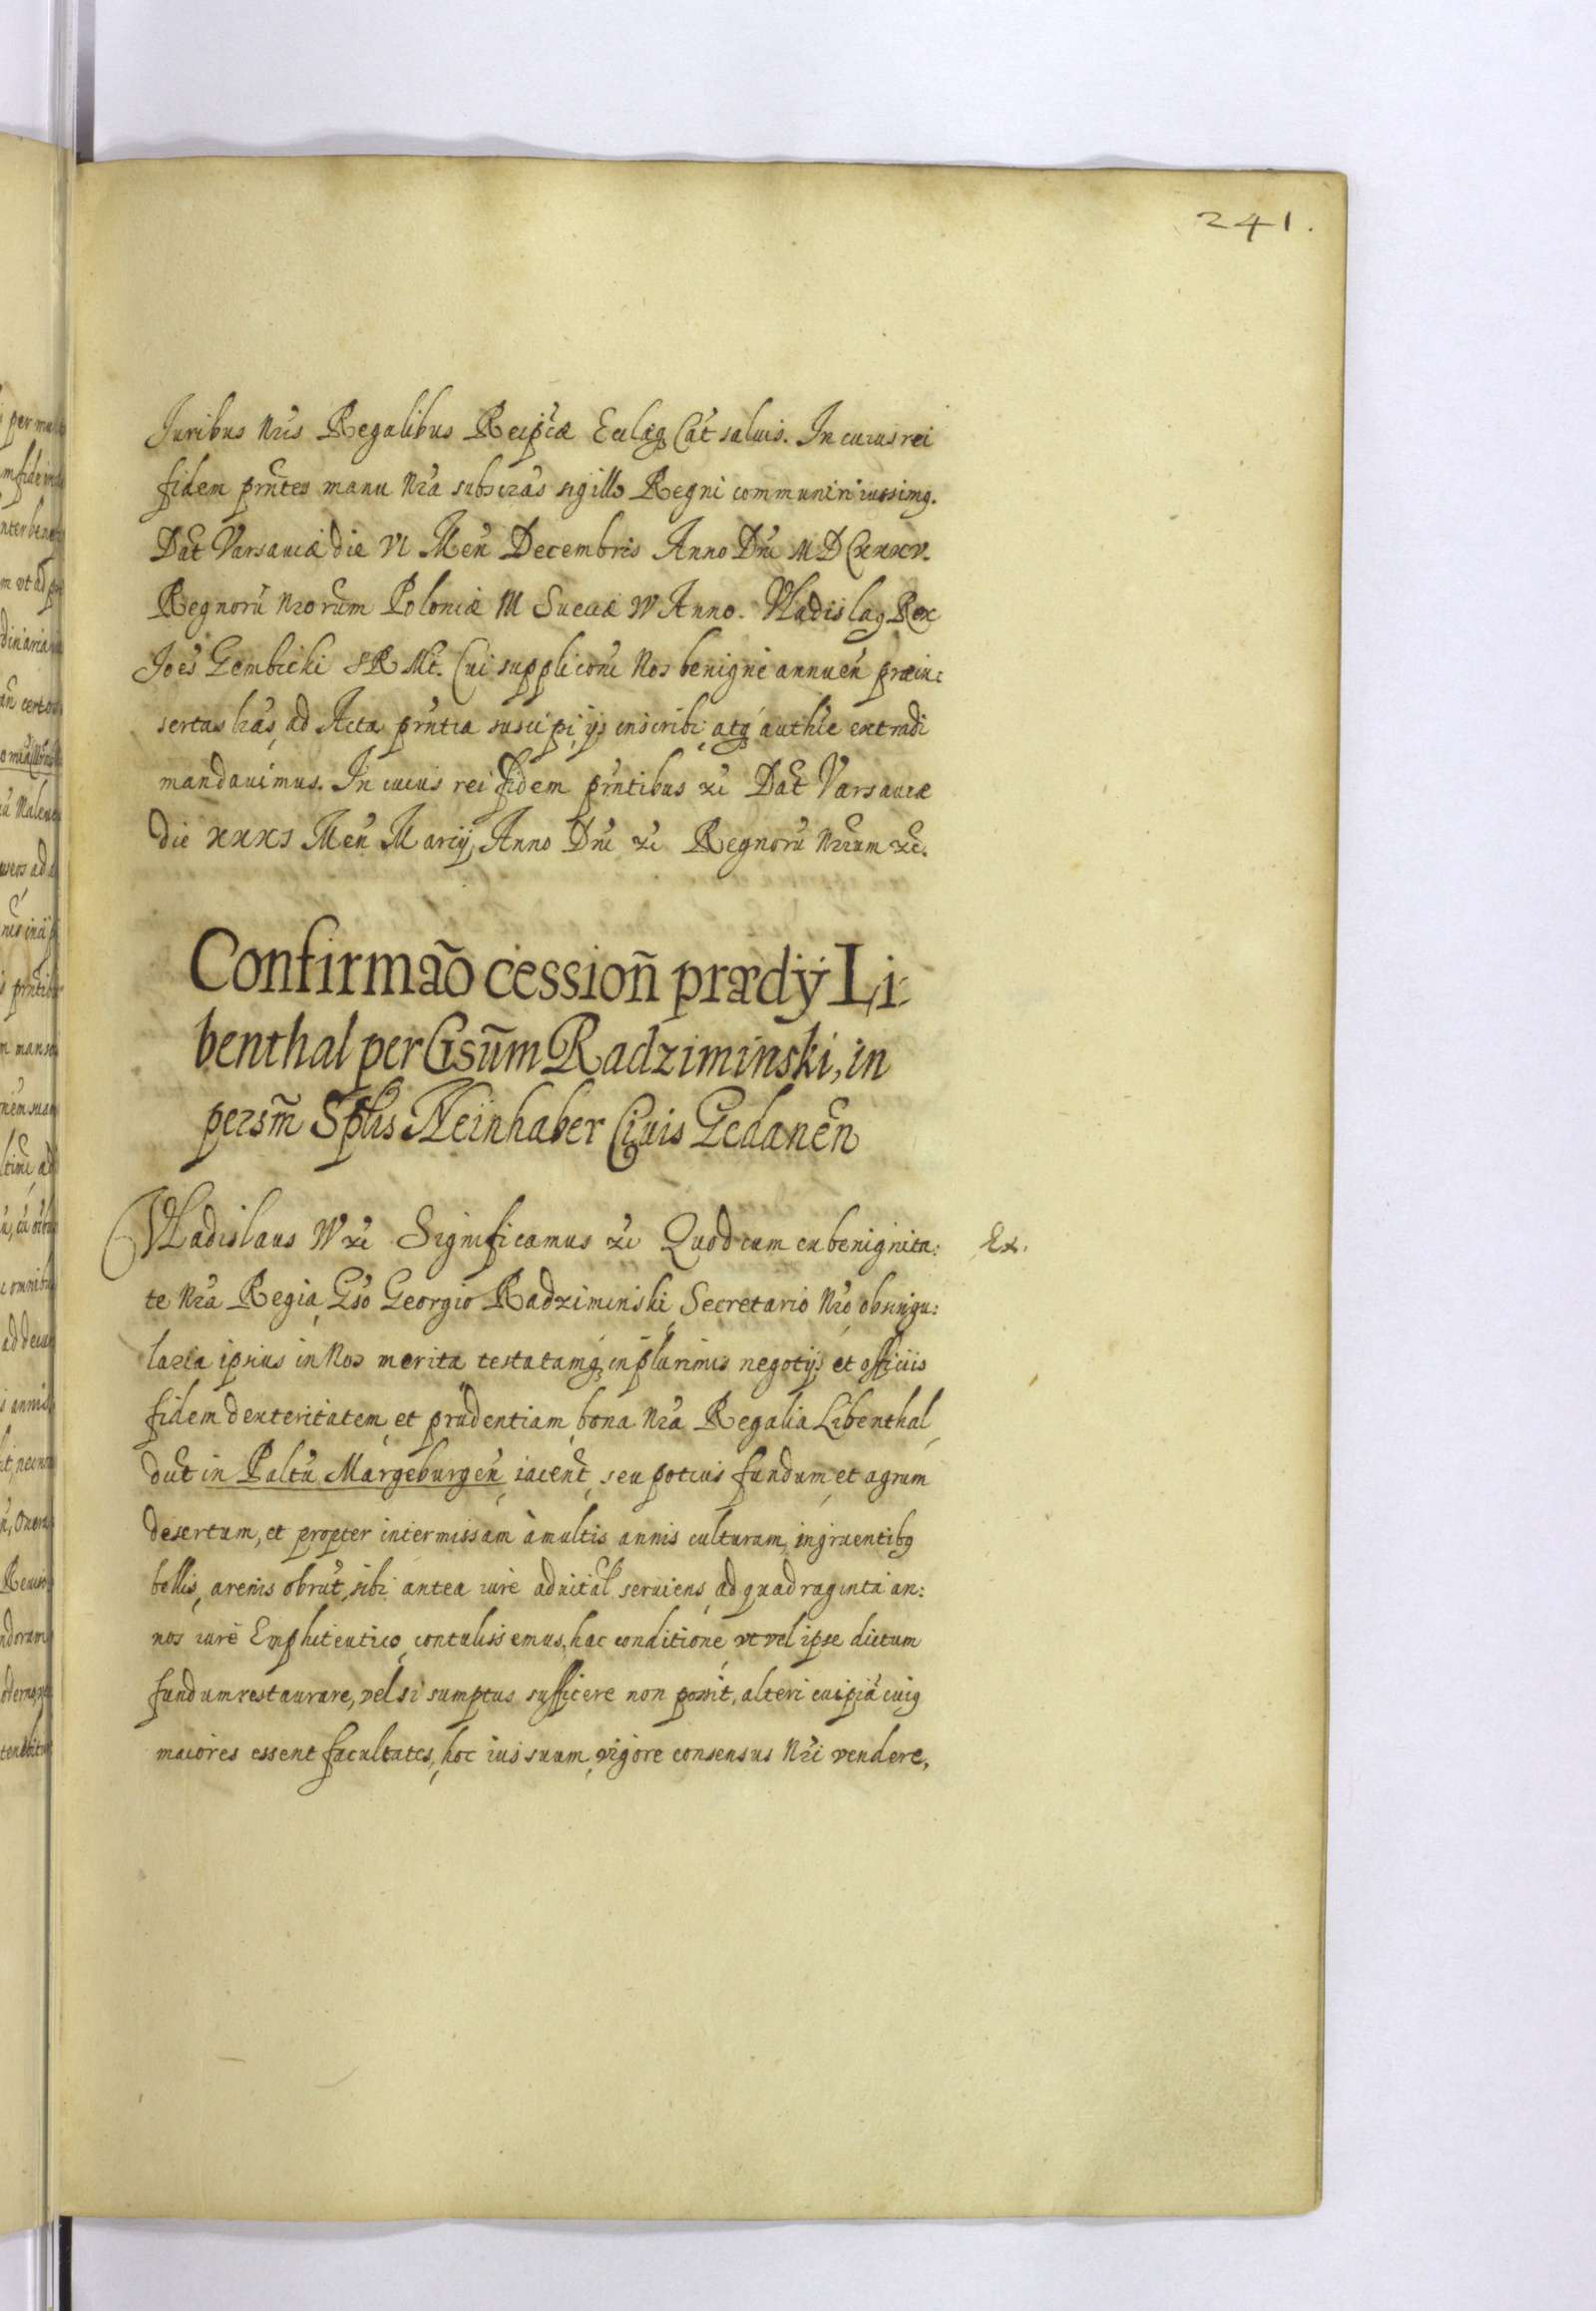 241.
Juribus Nris Regalibus Reipcæ Eclæq Cat saluis. In cuius rei
fidem prntes manu Nra subscras sigillo Regni communiri iussimq.
Dat Varsauiæ die VI Men Decembris Anno Dni MDCxxxv.
Regnorũ Nrorum Poloniæ III Sueciæ IV Anno. Vladislaq Rex
Joes Gembicki SR Mt. Cui suppliconi Nos benigne annuen præin:
sertas lras, ad Acta prntia suscipi, ijs inscribi, atq authce extradi
mandauimus. In cuius rei fidem prntibus xc Dat Varsauiæ
die XXXI Men Marcij, Anno Dni xc Regnorũ Nrrum xc.
Confirmão cession prædij Li-
benthal per Gsum Radziminski, in
persm Splis Neinhaber Ciuis Gedanen
Vladislaus IV xc Significamus xc Quod cum ex benignita:
Ex.
te Nra Regia, Gso Georgio Radziminski, Secretario Nro, ob singu:
laria ipsius in Nos merita testatamq, in plurimis negotijs et officiis
fidem dexteritatem, et prudentiam, bona Nra Regalia Libenthal,
dict in Paltu Margeburgen, iacent, seu potius fundum, et agrum
desertum, et propter intermissam à multis annis culturam, ingruentibq
bellis, arenis obrut, sibi antea iure aduital seruiens, ad quadraginta an:
nos iure Emphiteutico, contulissemus, hac conditione, vt vel ipse dictum
fundum restaurare, vel si sumptus sufficere non possit, alteri cuipiã cuiq
maiores essent facultates, hoc ius suum, vigore consensus Nri vendere,